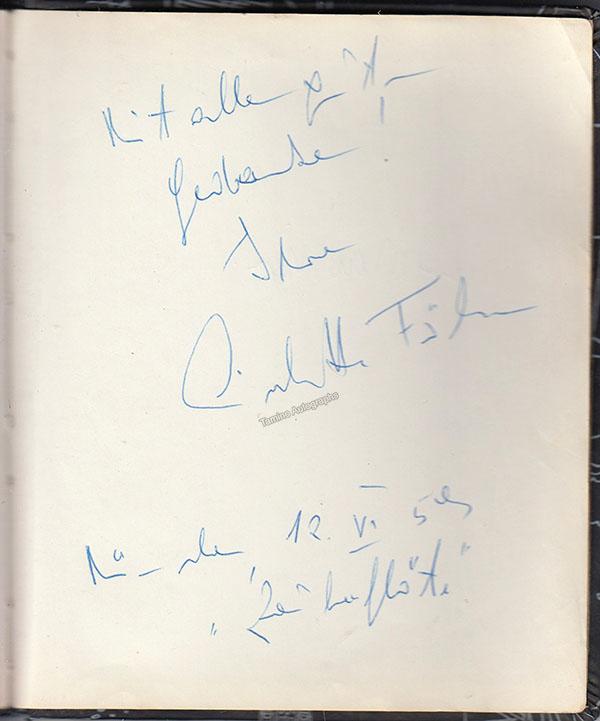 Mit allen guten
Gedanken!
Ihre
Fölser
Tamino Autographs
München, 12. VI.
„Zauberflöte"